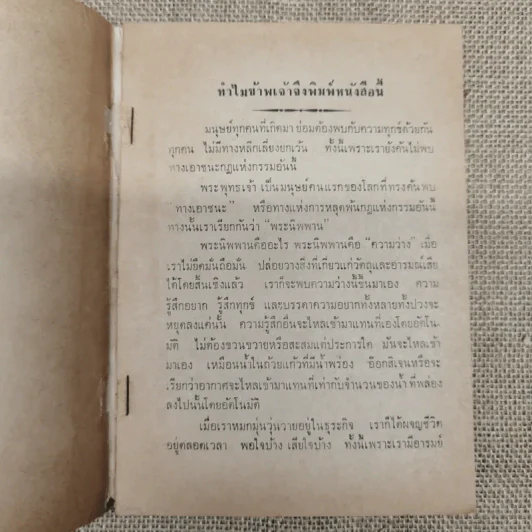 ทำไมข้าพเจ้าจึงพิมพ์หนังสือนี้
มนุษย์ทุกคนที่เกิดมา ย่อมต้องพบกับความทุกข์ด้วยกัน
ทุกคน ไม่มีทางหลีกเลี่ยงยกเว้น ทั้งนี้เพราะเรายังค้นไม่พบ
ทางเอาชนะกฎแห่งกรรมอันนี้
พระพุทธเจ้า เป็นมนุษย์คนแรกของโลกที่ทรงค้นพบ
"ทางเอาชนะ" หรือทางแห่งการหลุดพ้นกฎแห่งกรรมอันนี้
ทางนั้นเราเรียกกันว่า "พระนิพพาน"
พระนิพพานคืออะไร พระนิพพานคือ "ความว่าง" เมื่อ
เราไม่ยึดมั่นถือมั่น ปล่อยวางสิ่งที่เกี่ยวแก่วัตถุและอารมณ์เสีย
ได้โดยสิ้นเชิงแล้ว เราก็จะพบความว่างนี้ขึ้นมาเอง ความ
รู้สึกอยาก รู้สึกทุกข์ และบรรดาความอยากทั้งหลายทั้งปวงจะ
หยุดลงแค่นั้น ความรู้สึกอื่นจะไหลเข้ามาแทนที่เองโดยอัตโน-
มัติ ไม่ต้องชวนขวายหรือสะสมแต่ประการใด มันจะไหลเข้า
มาเอง เหมือนน้ำในถ้วยแก้วที่มีน้ำพร่อง อ๊อกสิเจนหรือจะ
เรียกว่าอากาศจะไหลเข้ามาแทนที่เท่ากับจำนวนของน้ำ ที่พล่อง
ลงไปนั้นโดยอัตโนมัติ
เมื่อเราหมกมุ่นวุ่นวายอยู่ในธุระกิจ เราก็ได้ผจญชีวิต
อยู่ตลอดเวลา พอใจบ้าง เสียใจบ้าง ทั้งนี้เพราะเรามีอารมย์